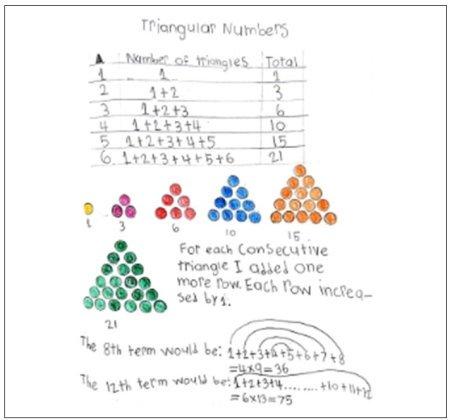 Triangular Numbers
Δ Number of triangles Total
1 1 1
2 1+2 3
3 1+2+3 6
4 1+2+3+4 10
5 1+2+3+4+5 15
6 1+2+3+4+5+6 21
1 3 6 10 15
For each consecutive
triangle I added one
more row. Each row increa-
sed by 1.
21
The 8th term would be: 1+2+3+4+5+6+7+8
=4x9=36
The 12th term would be: 1+2+3+4........+10+11+12
=6x13=75